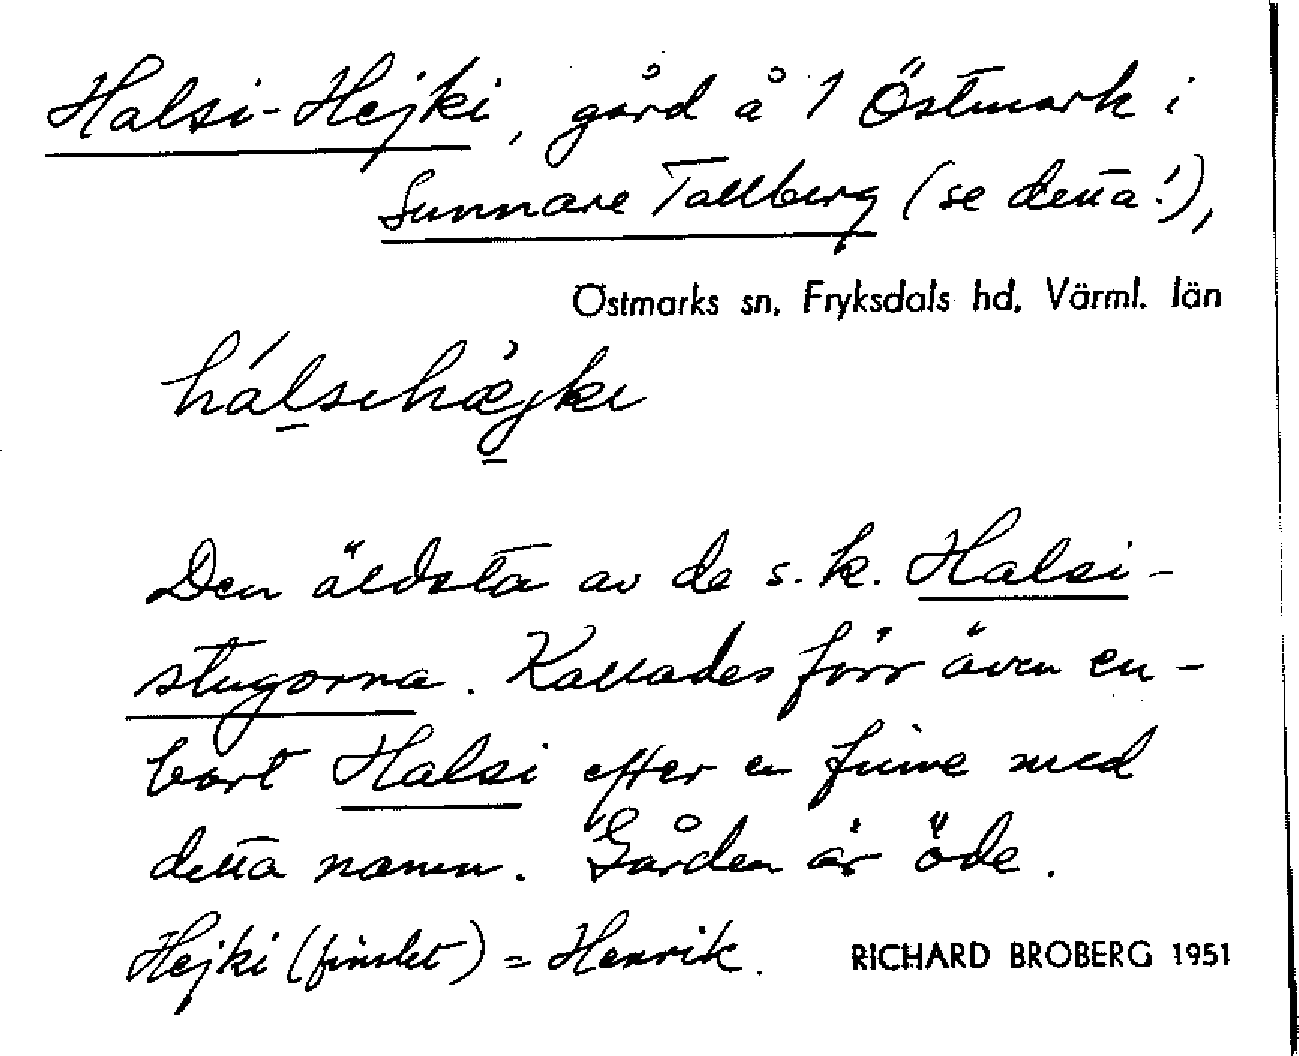 Halsi-Hejki, gård å 1 Östmark i
Sunnare Tallberg (se detta!),
Östmarks sn, Fryksdals hd, Värml. län
hálsihæ̀jki
Den äldsta av de s.k. Halsi-
stugorna. Kallades förr även en-
bart Halsi efter en finne med
detta namn. Gården är öde.
Hejki (finskt) = Henrik. RICHARD BROBERG 1951